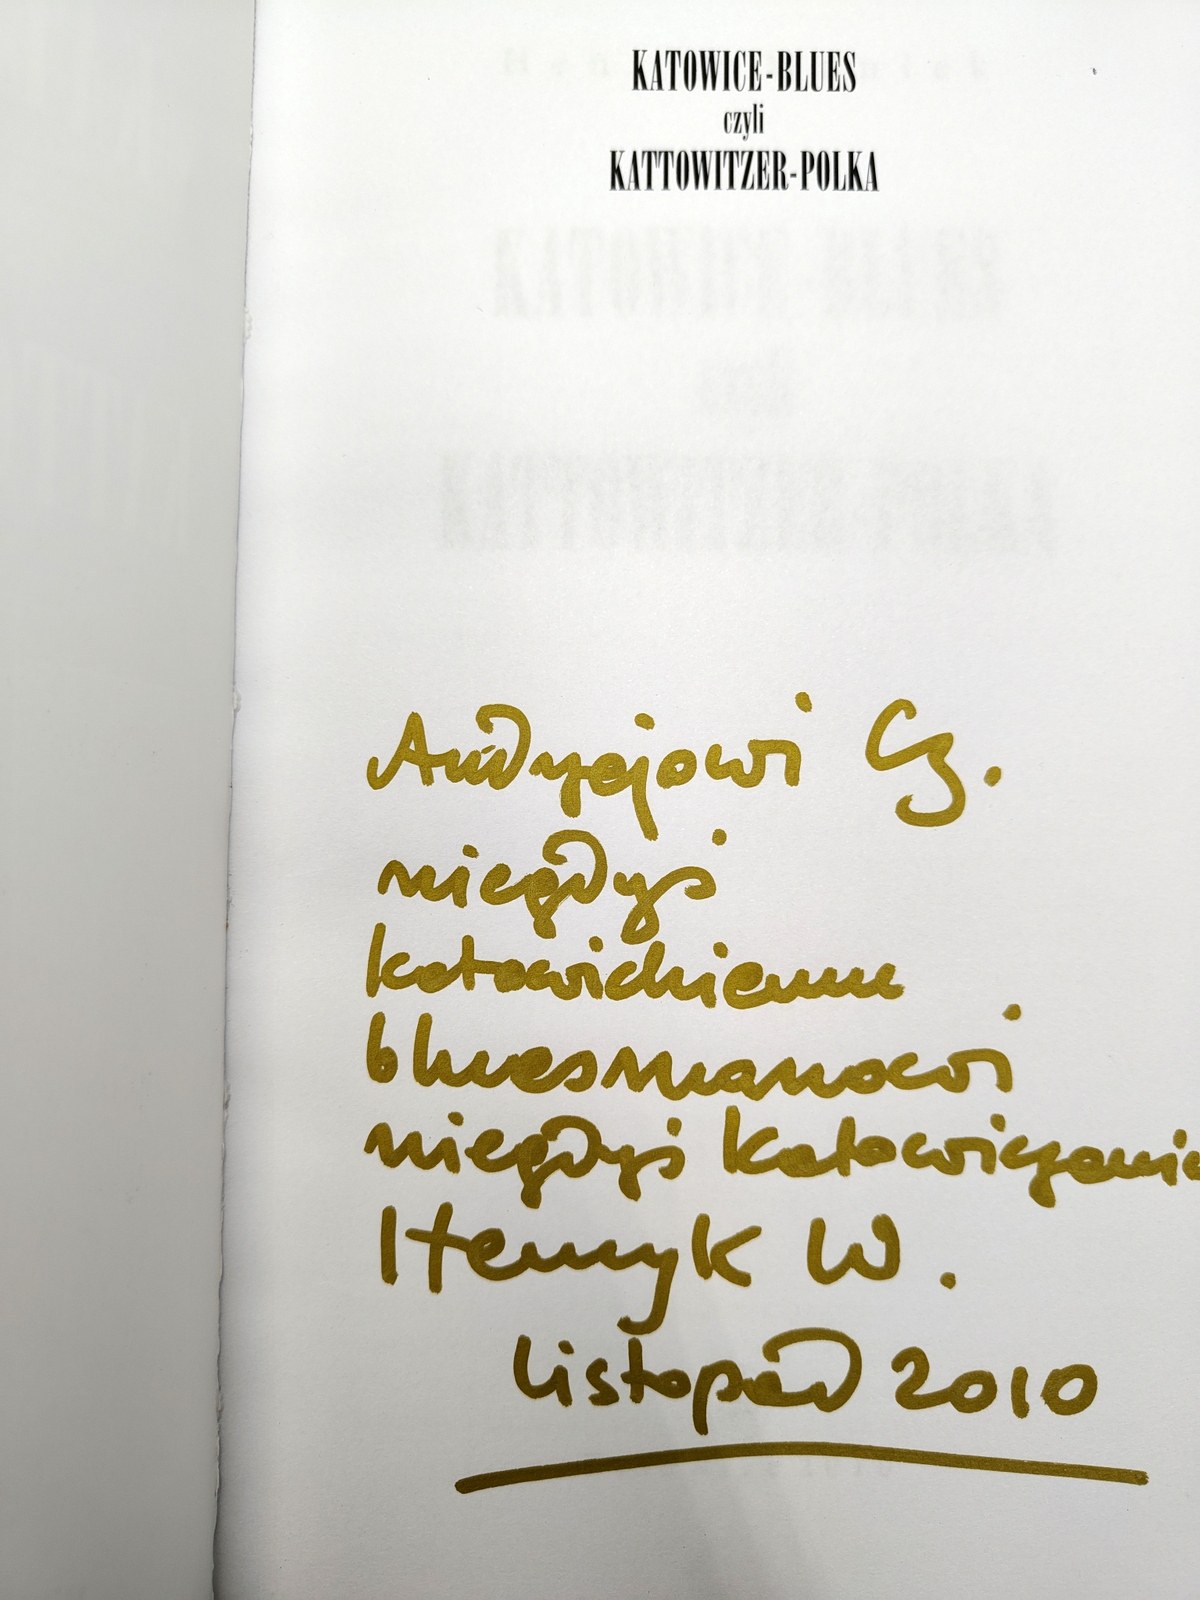 KATOWICE-BLUES
czyli
KATTOWITZER-POLKA
Andrzejowi Cz.
niegdyś
katowickiemu
bluesmanowi
niegdyś katowiczanin
Henryk W.
listopad 2010